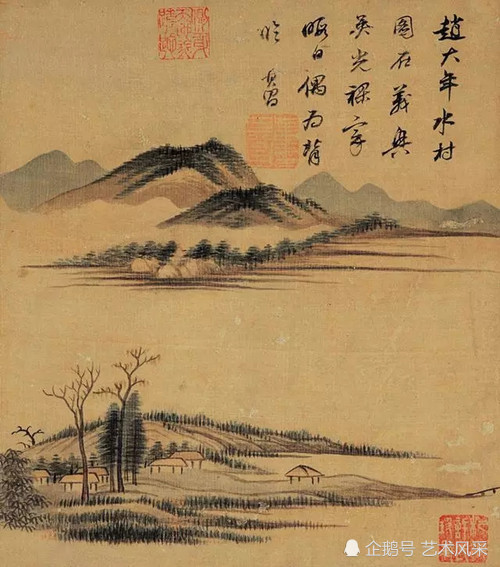 趙大年水村
圖在義興
吳光祿家
暇日偶為背
臨 其昌
企鹅号 艺术风采